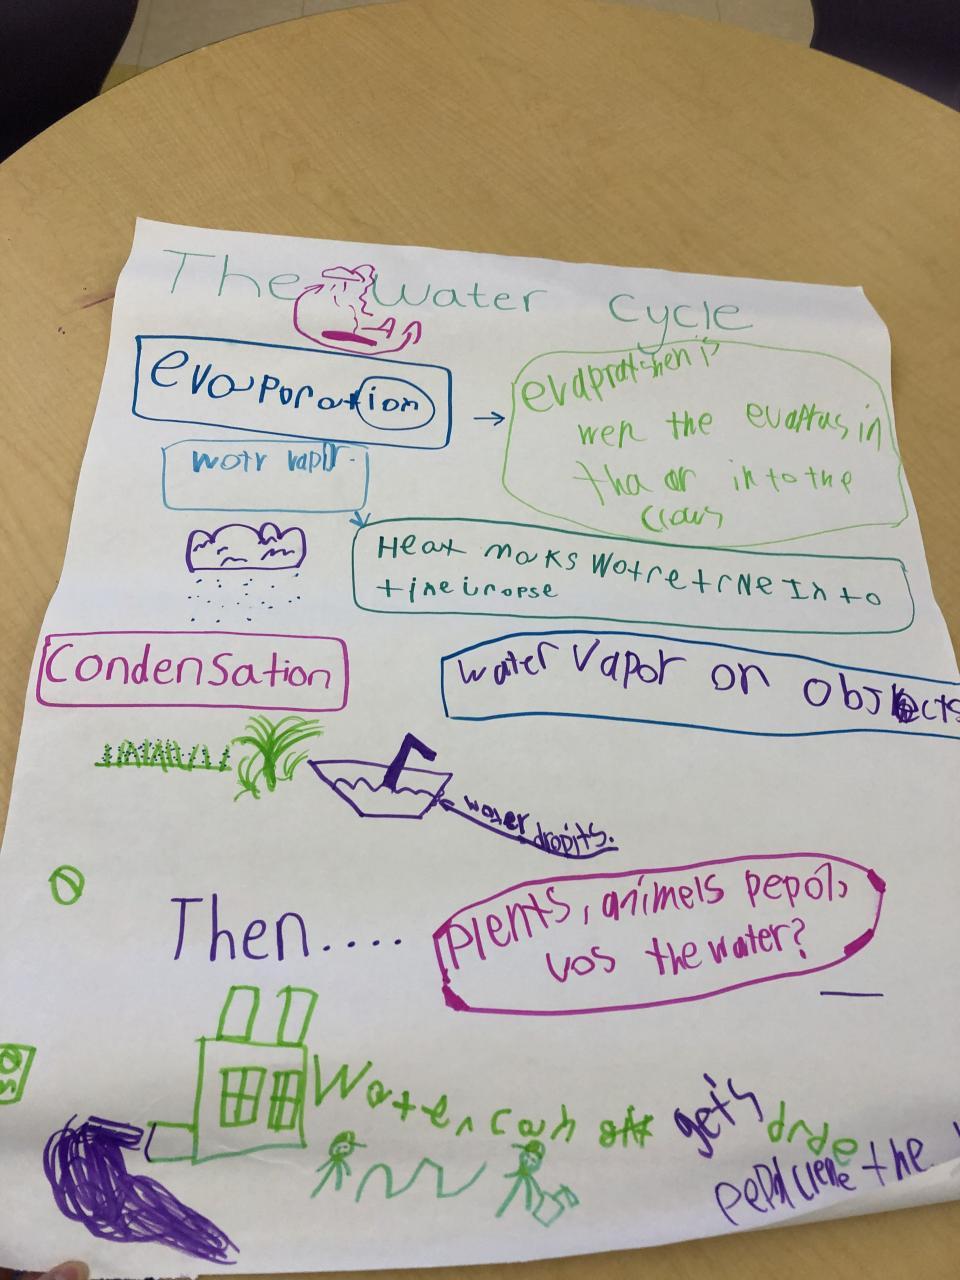 The Water Cycle
evaporation
evapratshen is
wen the evaprus in
tha or in to the
Clows
wotr vapir.
Heat maks Wotre trNe In to
Condensation
Water Vapor on Objects
water
dropits.
Then....
Plents, animels pepol,
uos the water?
so
Water can
gets drde
pepol clene the